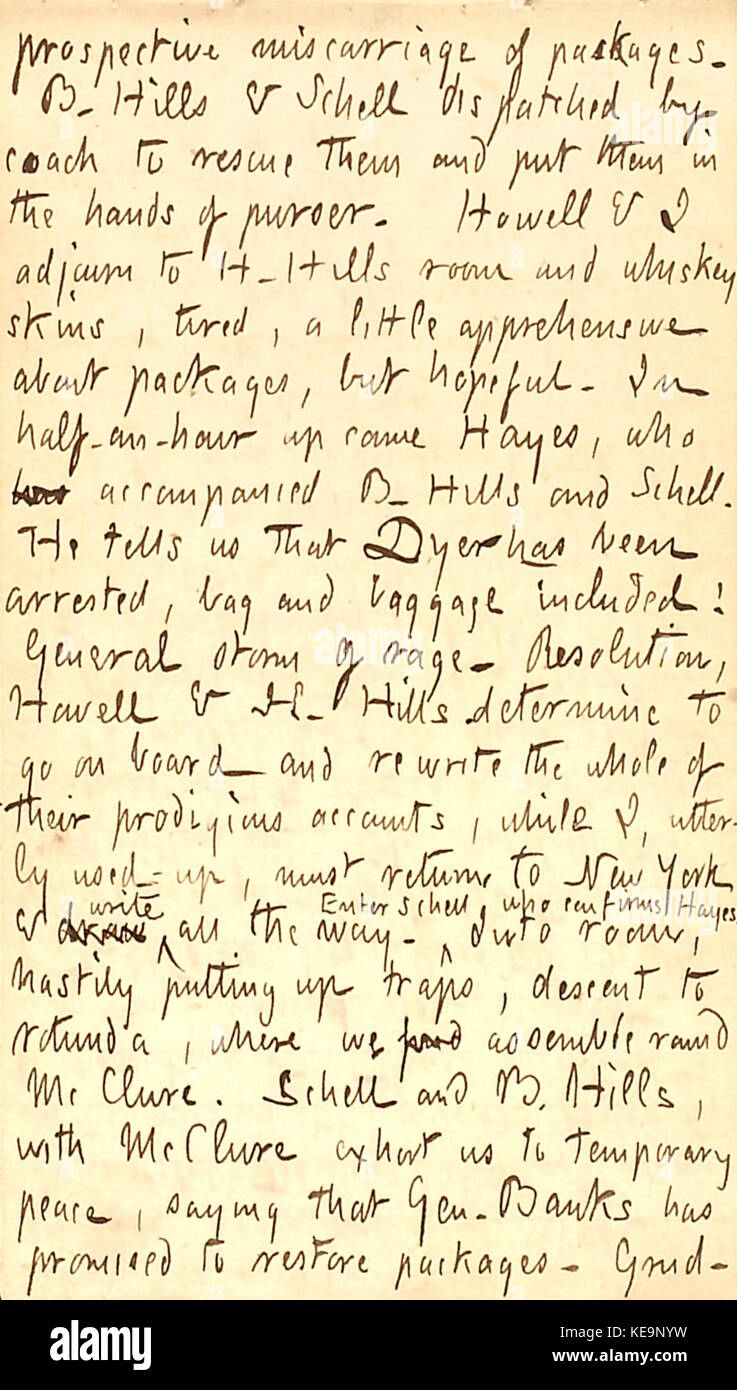 prospective miscarriage of packages.
B. Hills & Schell dispatched by
coach to rescue them and put them in
the hands of purser. Howell & I
adjourn to H. Hills room and whiskey
skins, tired, a little apprehensive
about packages, but hopeful. In
half-an-hour up came Hayes, who
has accompanied B. Hills and Schell.
He tells us that Dyer has been
arrested, bag and baggage included!
General storm of rage. Resolution,
Howell & H. Hills determine to
go on board and rewrite the whole of
their prodigious accounts, while I, utter-
ly used-up, must return to New York
write Enter Schell, who confirms Hayes
& draw all the way. Into room,
hastily putting up traps, descent to
rotunda, where we assemble round
McClure. Schell and B. Hills,
with McClure exhort us to temporary
peace, saying that Gen. Banks has
promised to restore packages. Grud-
alamy
alamy
Image ID: KE9NYW
www.alamy.com